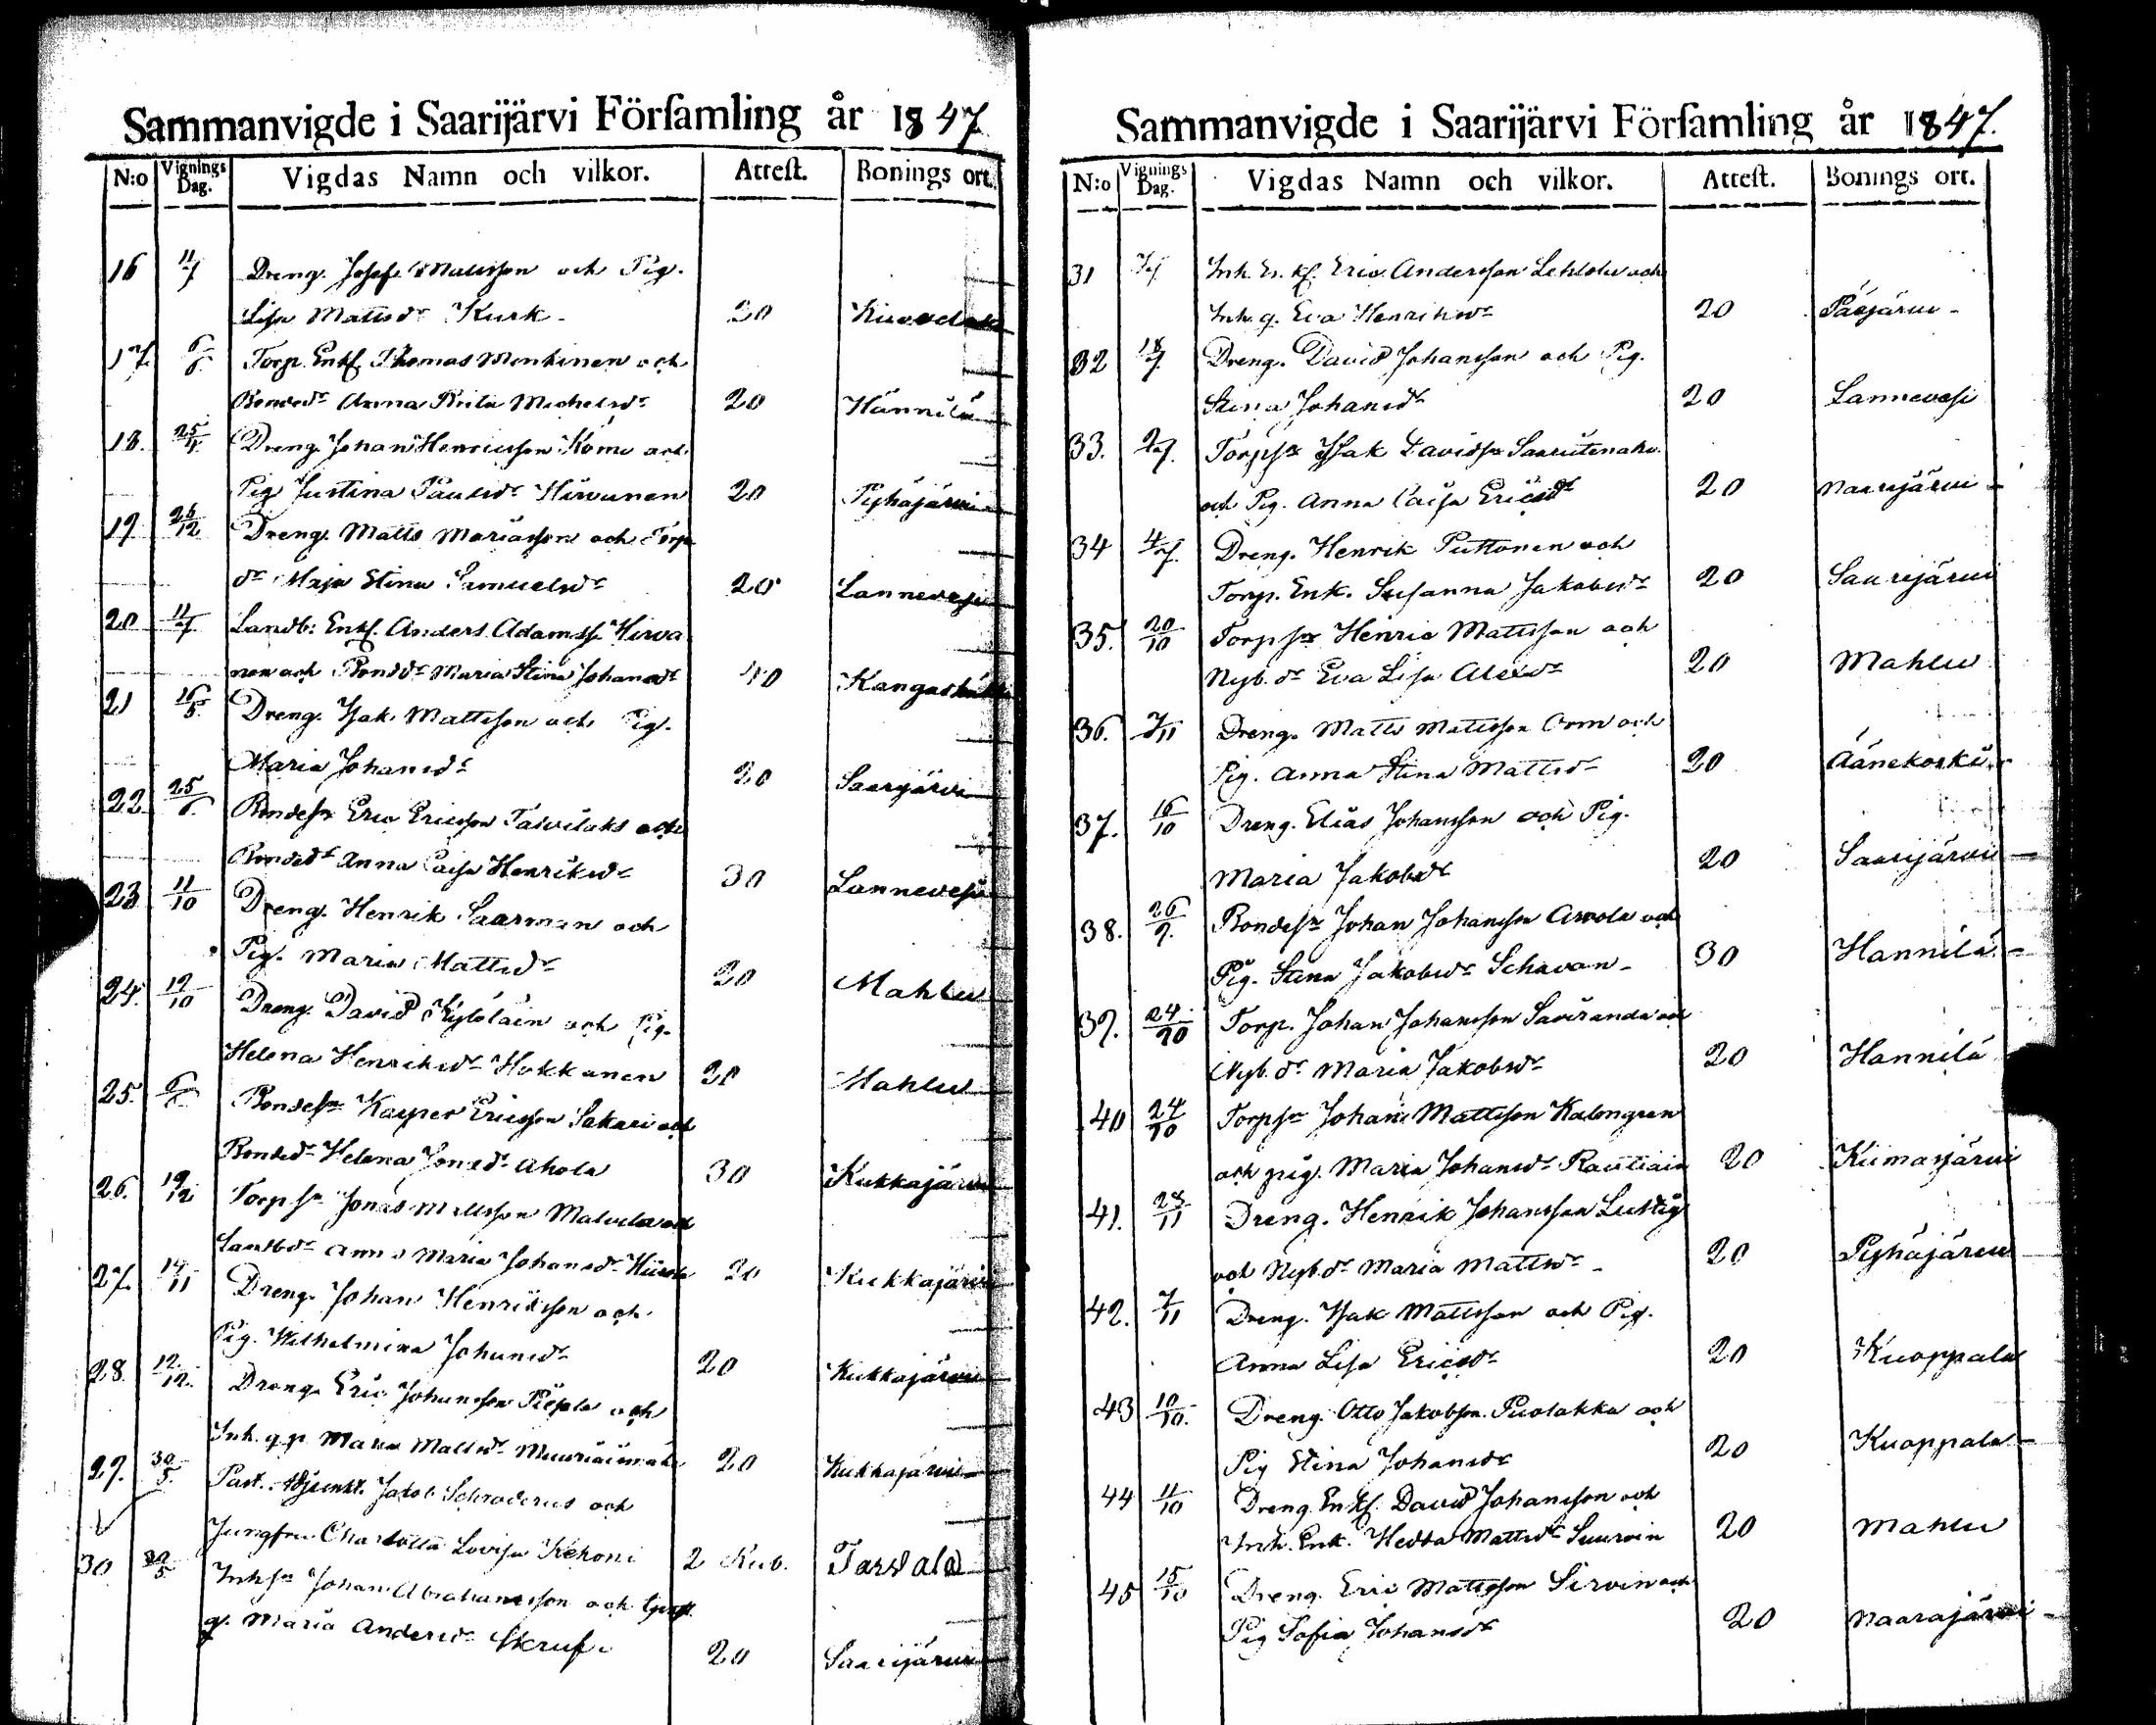 Sammanvigde i Saarijärvi Förſamling år 1847
N:o Vignings Dag. Vigdas Namn och vilkor. Atteſt. Bonings ort.
16 11/7 Dreng. Josef Mattsson och Pig.
Lisa Mattsdr Kurk - 20
17. 6/6 Torp. Enkl. Thomas Minkinen och
Bondedr Anna Brita Michelsdr 20 Hännilä
18. 25/4 Dreng Johan Henricsson Komu och
Pig Justina Paulsdr Hirvunen 20 Pyhäjärvi
19. 26/12 Dreng. Matts Mariasson och Torp
dr Maja Stina Samuelsdr 20 Lannevesi
20 11/7 Landb: Enkl. Anders Adamss. Hirva
nen och Bondedr Maria Stina Johansdr 40
21 16/5. Dreng. Isak Mattsson och Pig.
Maria Johansdr 20 Saarijärvi
22. 25/6. Bondesn Eric Ericsson Talvilaks och
Bondedr Anna Caisa Henriksdr 30 Lannevesi
23 11/10 Dreng. Henrik Saarman och
Pig. Maria Mattsdr 20 Mahlu
24. 19/10 Dreng. David Kylöläin och Pig.
Helena Henriksdr Hokkanen 20 Mahlu
25. 6/6 Bondesn Kasper Ericsson Sakari och
Bondedr Helena Jonasdr Ahola 30 Kukkajärvi
26. 19/12 Torp. sn Jonas Mattsson Matula och
Landbdr Anna Maria Johansdr 20 Kukkajärvi
27. 14/11 Dreng. Johan Henriksson och
Pig. Wilhelmina Johansdr 20 Kukkajärvi
28. 12/12. Dreng. Eric Johansson Piispala och
Inh. q.p. Maria Mattsdr 20 Kukkajärvi
29. 30/5. Past. Adjunkt. Jakob Schroderus och
Jungfru Charlotta Lovisa Kekoni 2 Rub. Tarvala
30 30/5. Inhsn Johan Abrahamsson och
q. Maria Andersdr Skruf 20 Saarijärvi
Sammanvigde i Saarijärvi Förſamling år 1847.
N:o Vignings Dag. Vigdas Namn och vilkor. Atteſt. Bonings ort.
31 Inh. En. kl. Eric Andersson Lehtola och
Inh. q. Eva Henriksdr 20 Pääjärvi -
32 18/7. Dreng. David Johansson och Pig.
Stina Johansdr 20 Lannevesi
33. 2/7. Torpsn Isak Davidsn
och Pig. Anna Caisa Ericsdr 20 Naarajärvi -
34 4/7. Dreng. Henrik Puttonen och
Torp. Enk. Susanna Jakobsdr 20 Saarijärvi
35. 20/10 Torpsn Henric Mattsson och
Nyb. dr Eva Lisa Alexdr 20 Mahlu
36. 7/11 Dreng. Matts Mattsson Orm och
Pig. Anna Stina Mattsdr 20 Äänekoski -
37. 16/10 Dreng. Elias Johansson och Pig.
Maria Jakobsdr 20 Saarijärvi -
38. 26/9. Bondesn Johan Johansson Arvola och
Pig. Stina Jakobsdr Schavon - 30 Hännilä -
39. 24/10 Torp. Johan Johansson Saviranda och
Nyb. dr Maria Jakobsdr 20 Hännilä
40 24/10 Torpsn Johan Mattsson Kalmgren
och pig. Maria Johansdr Rautiain 20 Kiimasjärvi
41. 28/11 Dreng. Henrik Johansson Lustig
och Nyb. dr Maria Mattsdr - 20 Pyhäjärvi
42. 7/11 Dreng. Isak Mattsson och Pig.
Anna Lisa Ericsdr 20 Kuoppala
43 10/10. Dreng. Otto Jakobson. Puolakka och
Pig Stina Johansdr 20 Kuoppala -
44 11/10 Dreng. Enkl. David Johansson och
Inh. Enk. Hedda Mattsdr Suuroin 20 Mahlu
45 15/10 Dreng. Eric Mattsson Sirvin och
Pig Sofia Johansdr 20 Naarajärvi -